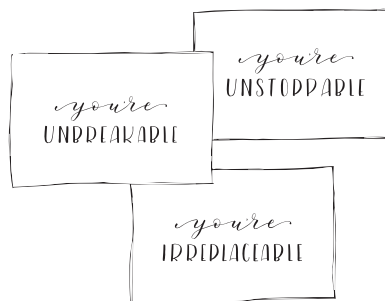 you're
UNSTOPPABLE
you're
UNBREAKABLE
you're
IRREPLACEABLE